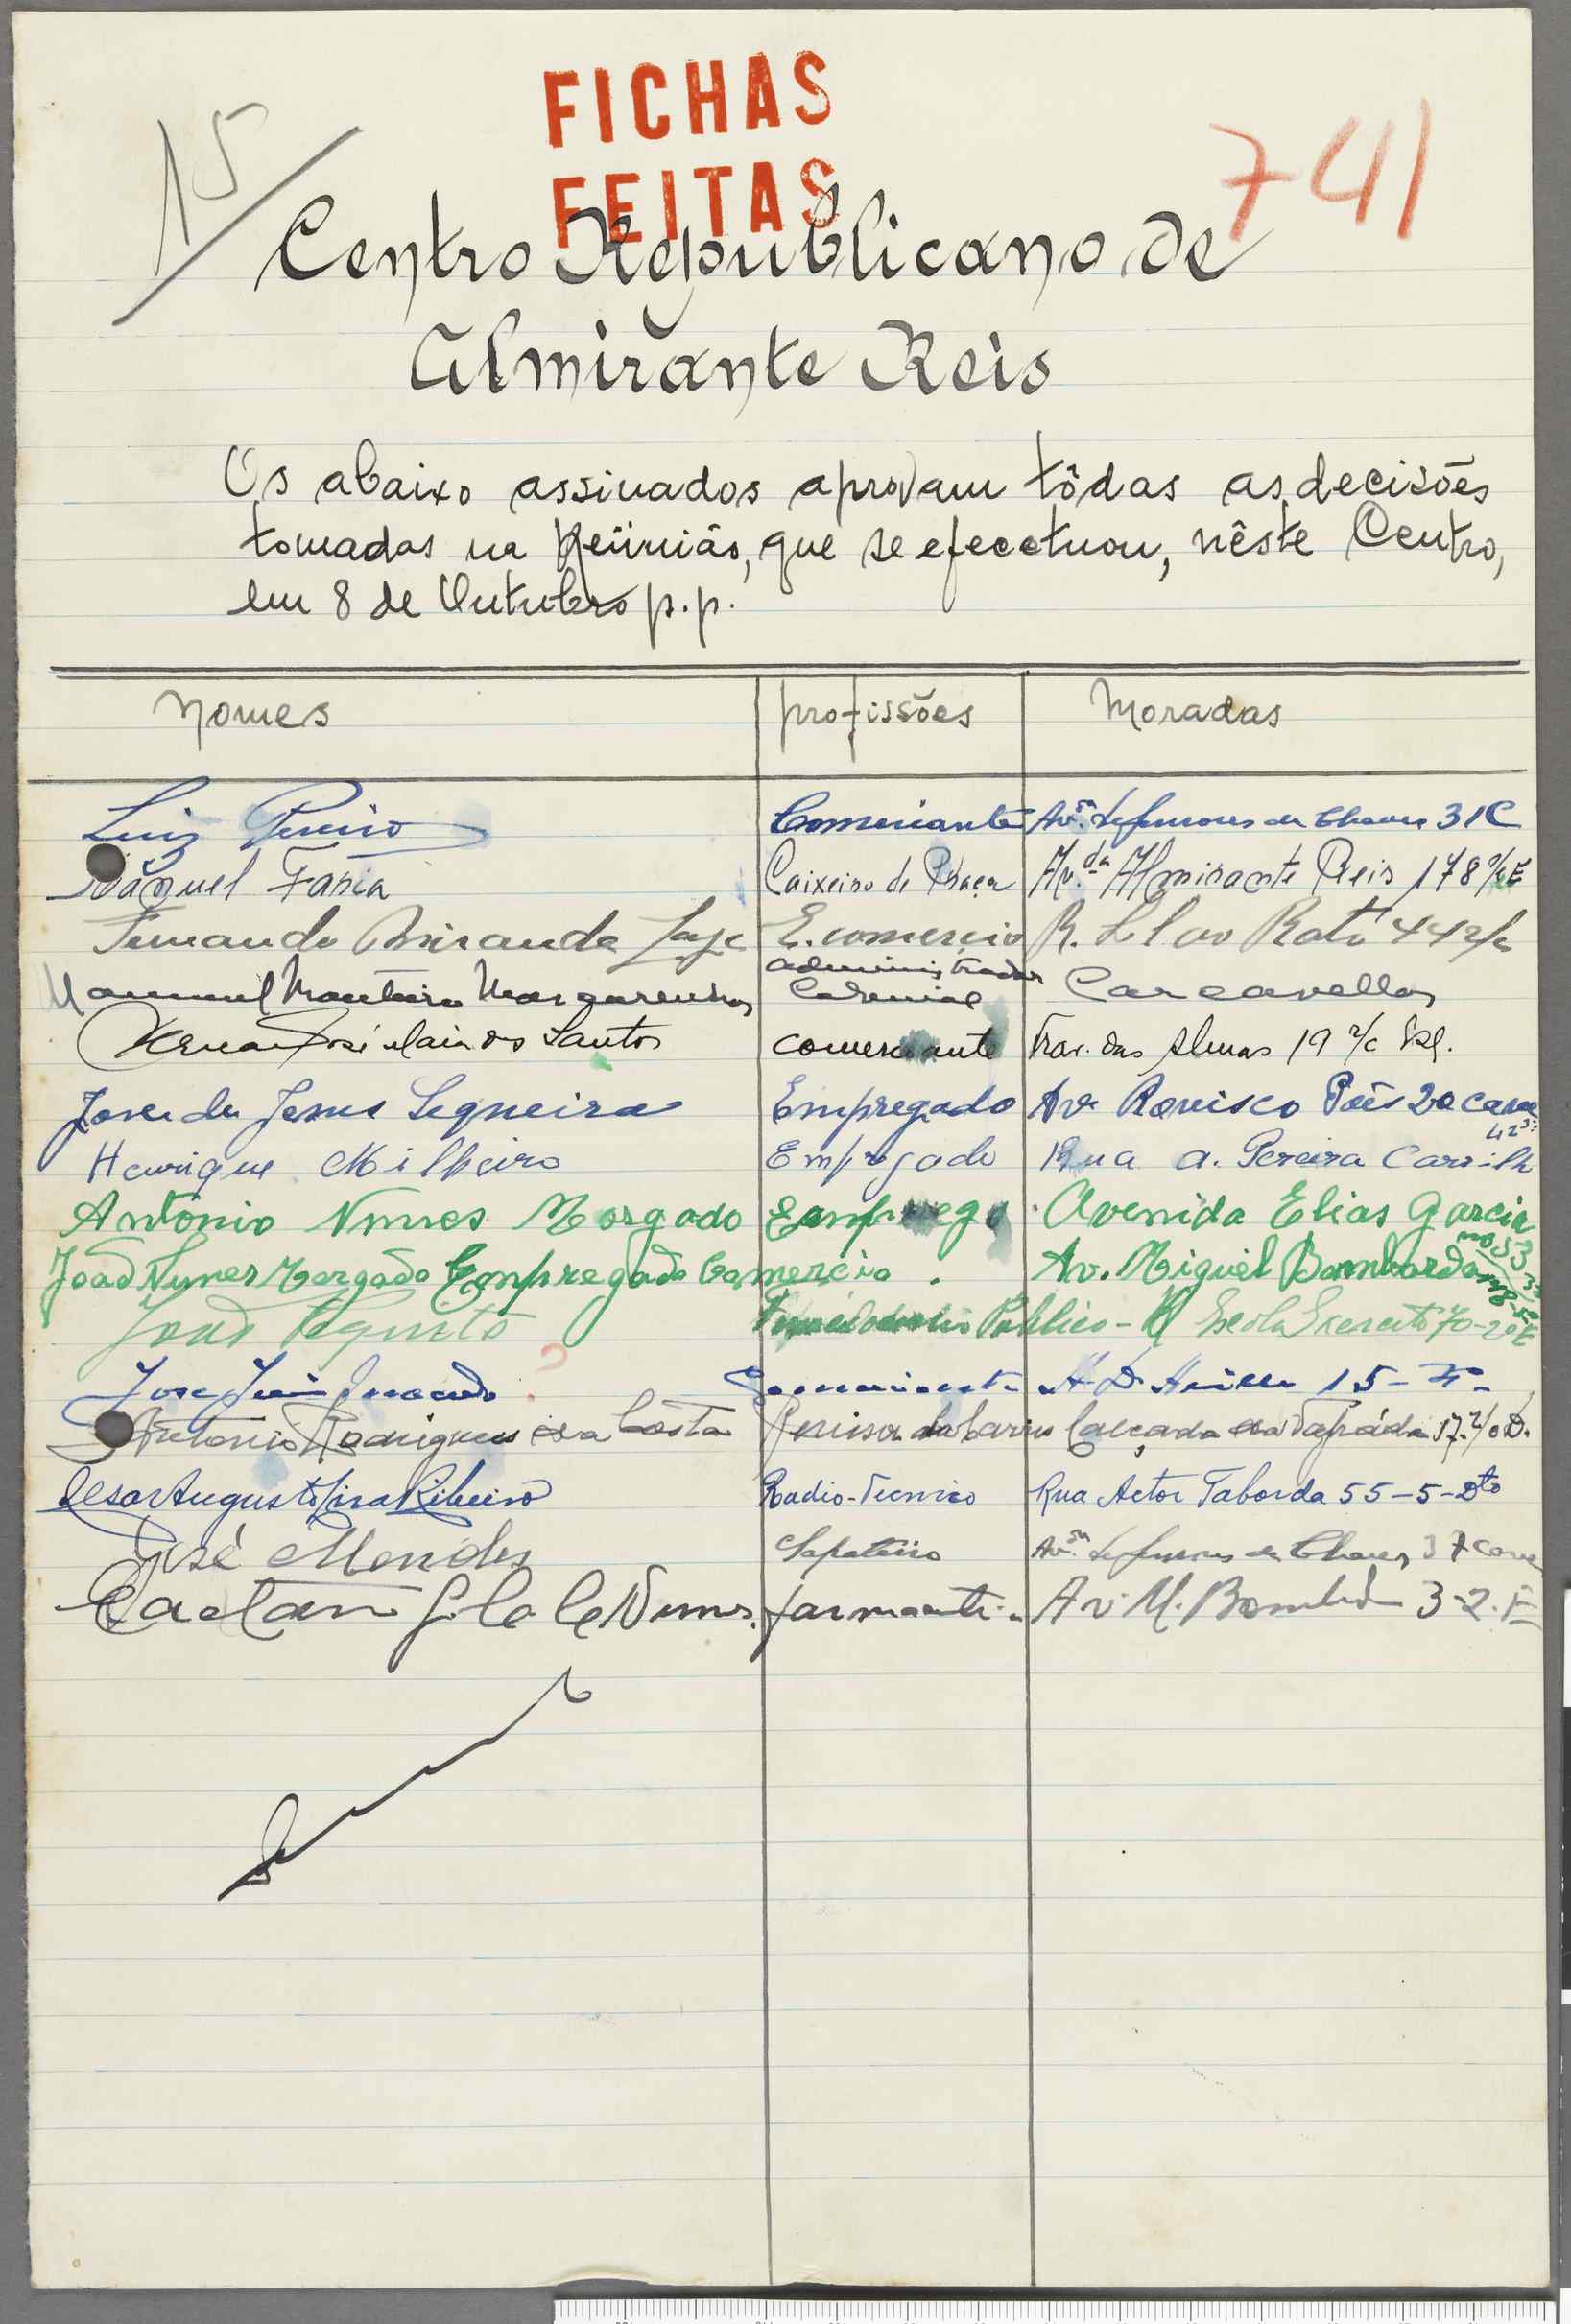 FICHAS
FEITAS
15
741
Centro Republicano de
Almirante Reis
Os abaixo assinados aprovam tôdas as decisões
tomadas na Reünião, que se efecctuou, nêste Centro,
em 8 de Outubro p.p.
Nomes profissões Moradas
Luiz Comerciante Av.ª Defensores de Chaves 31C
Manuel Faria Caixeiro de Praça Av.da Almirante Reis 178 r/c E
Fernando Miranda E. comercio R. Sol ao Rato 44 r/c
Manuel Monteiro administrador Colonial Carcavellos
dos Santos comerciante Trav. das Almas 19 r/c Esq.
José de Jesus Sequeira Empregado Av. Rovisco Pais 20 cave
Henrique Milheiro Empregado Rua A. Pereira Carrilho 42 3º
Antonio Nunes Morgado Empregº Avenida Elias Garcia
João Nunes Morgado Empregado Comercio. Av. Miguel Bombarda
João Publico - R Escola Exercito 70-2º E
José Comerciante 15-
Antonio Rodrigues da Costa Revisor da Carris Calçada da Tapáda 17 r/c D.
Cesar Augusto Lira Ribeiro Radio-Tecnico Rua Actor Taborda 55-5-Dto
José Mendes Sapateiro Av.ª Defensores de Chaves 37 cave
Caetano Nunes. Av. M. Bombarda 3-2.E